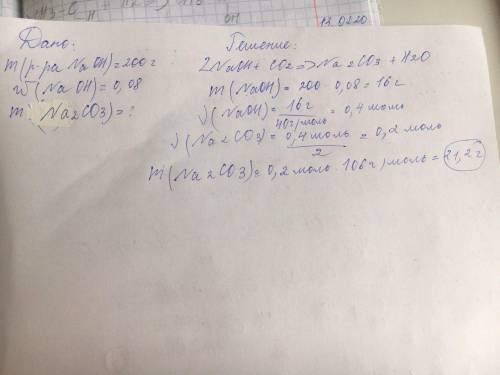 13.0220
Дано:
m(р-ра NaOH)=200г
w(NaOH)=0,08
m(Na2CO3)=?
Решение:
2NaOH+CO2=>Na2CO3+H2O
m(NaOH)=200·0,08=16г
ν(NaOH)=16г/40г/моль=0,4моль
ν(Na2CO3)=0,4моль/2=0,2моль
m(Na2CO3)=0,2моль·106г/моль=21,2г